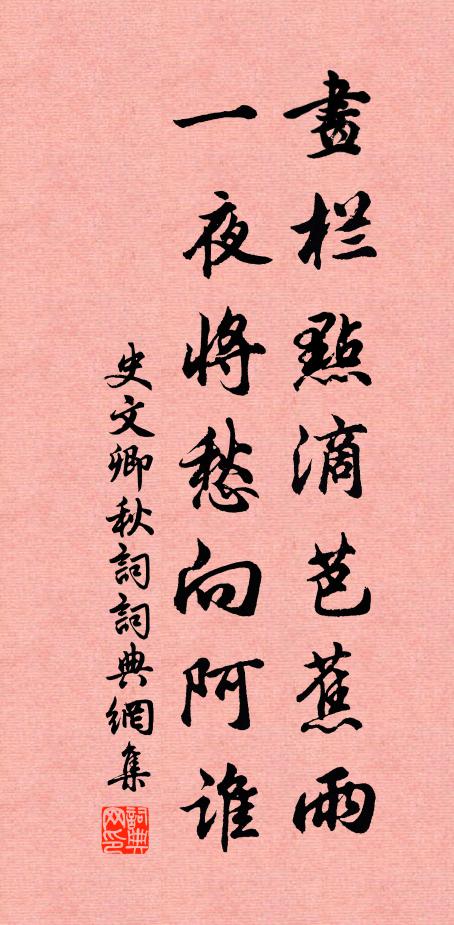 畫栏點滴芭蕉雨
一夜将愁向阿谁
史文卿秋詞詞典網集
詞典
网印